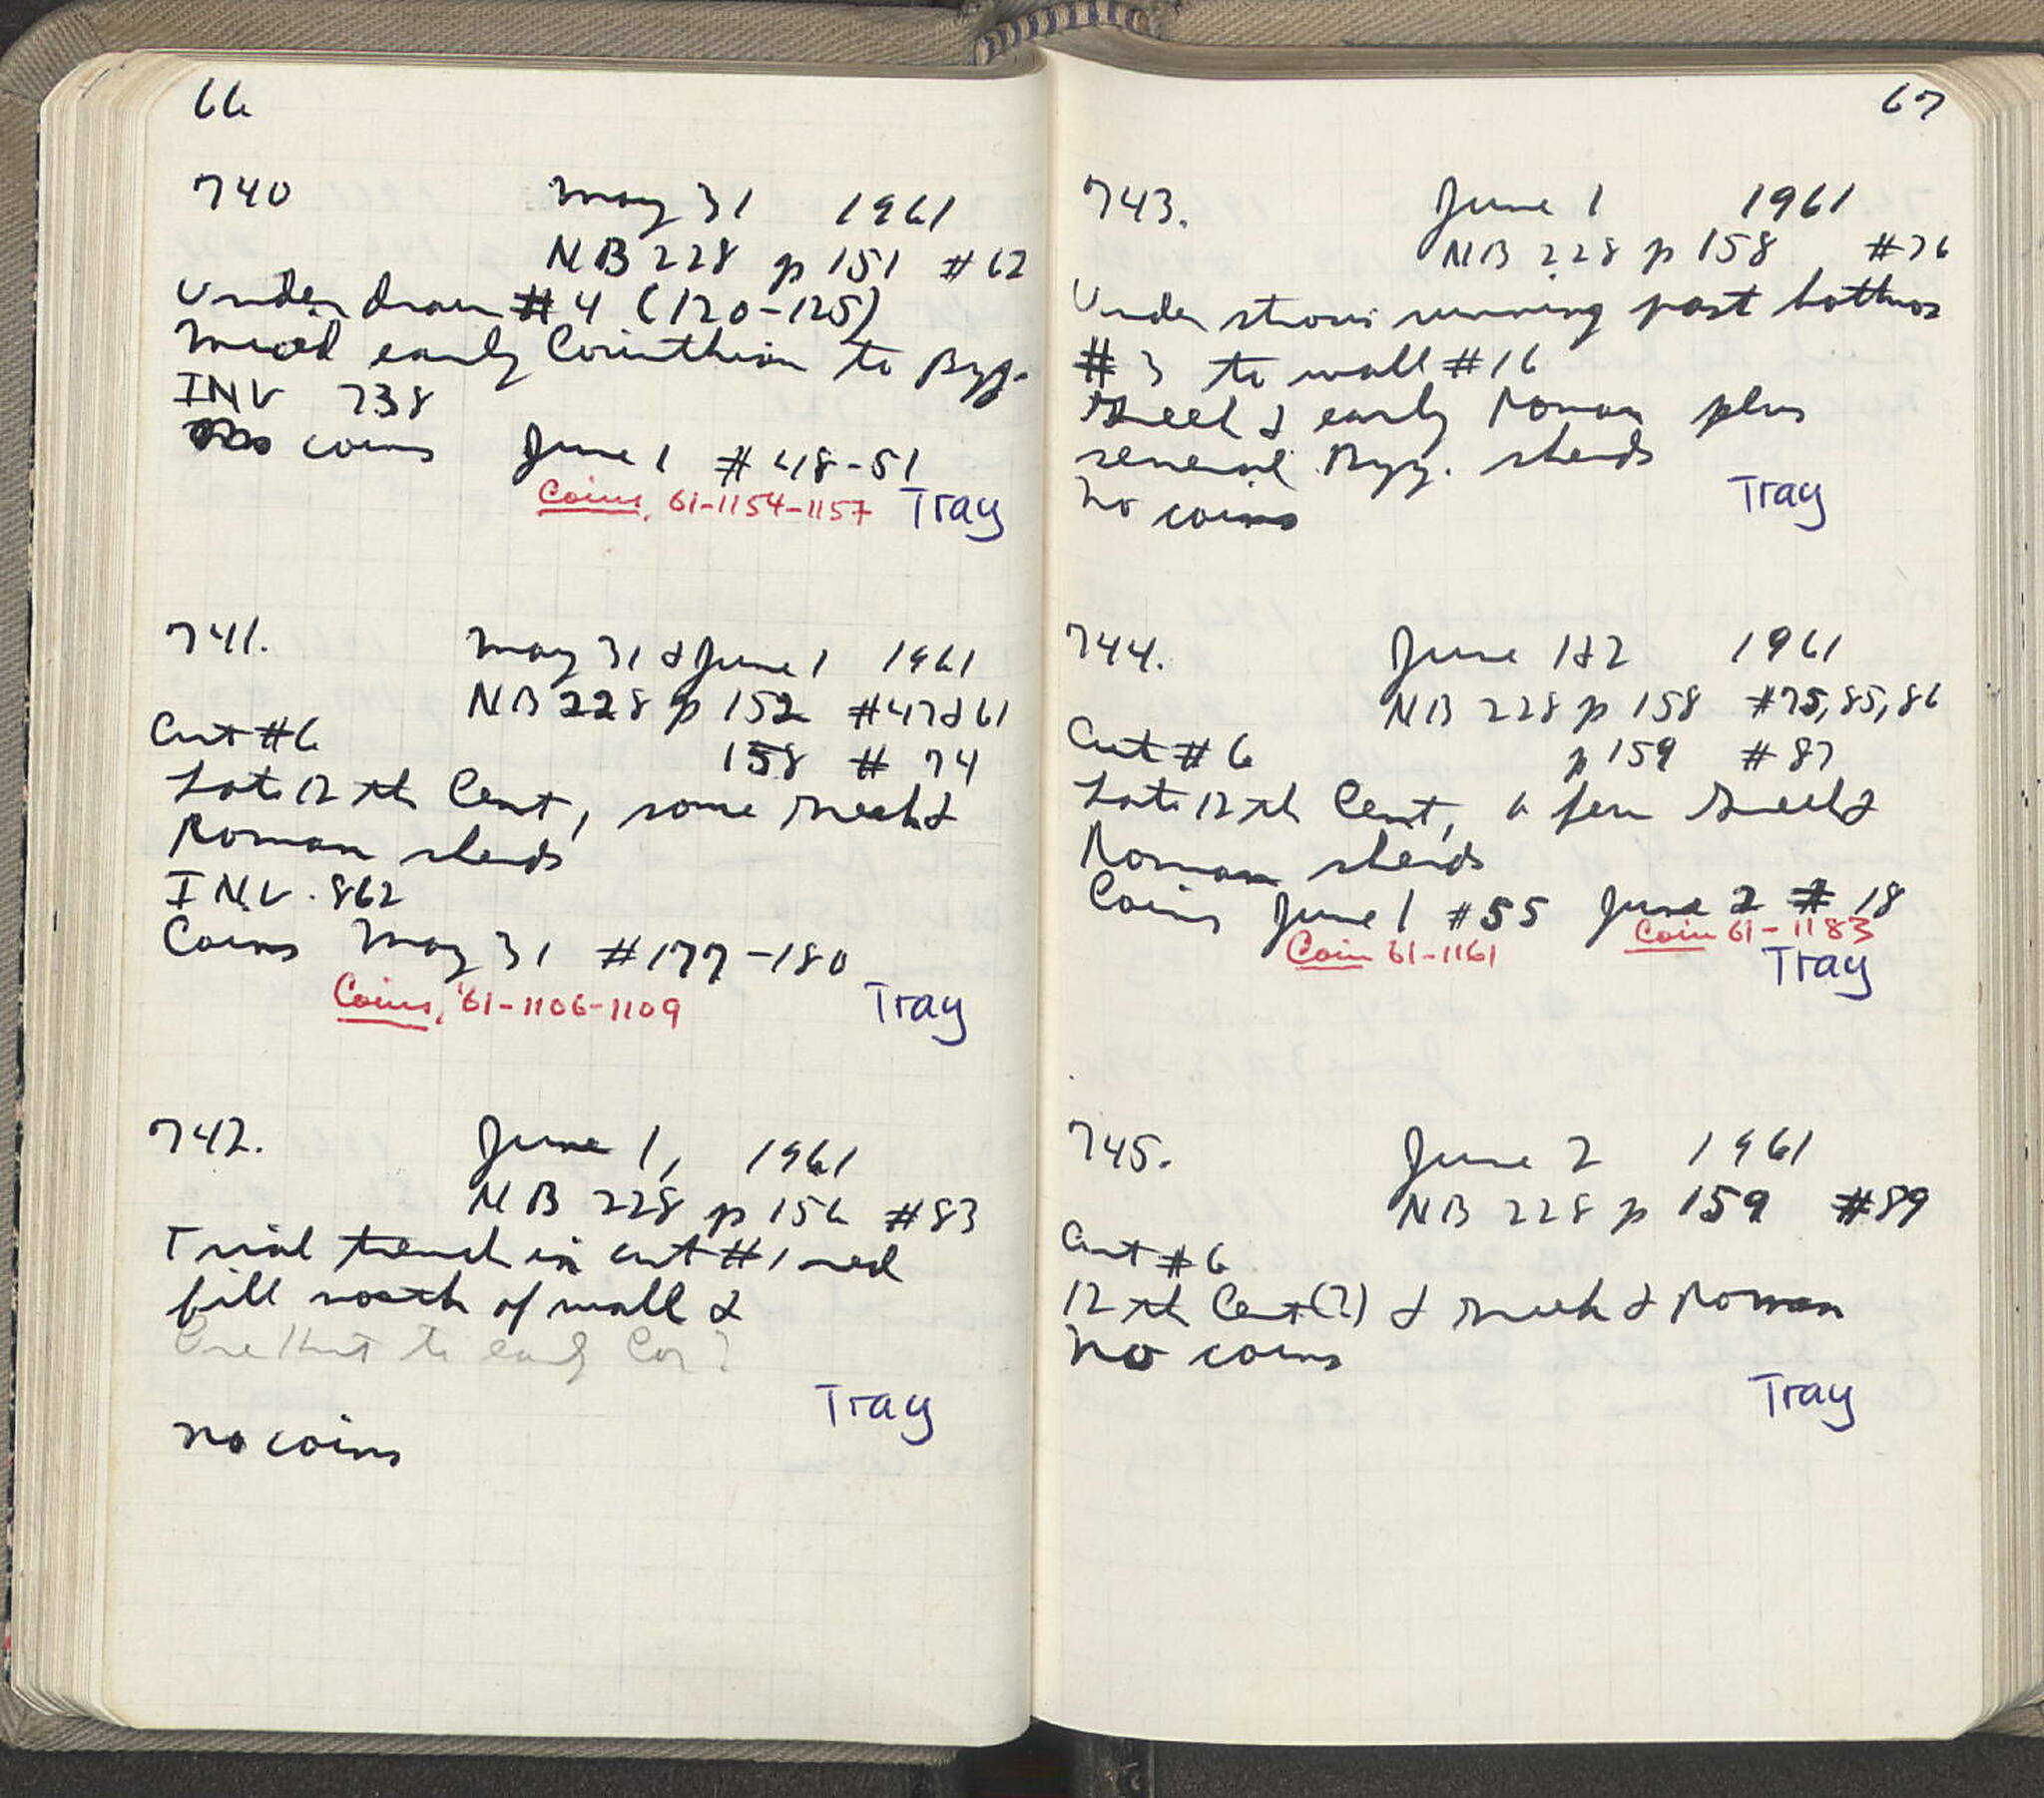 66
740 May 31 1961
NB 228 p 151 #62
Under drain #4 (120-125)
Mixed early Corinthian to Byz.
INV 738
coins June 1 #48-51
Coins, 61-1154-1157 Tray
741. May 31 & June 1 1961
NB 228 p 152 #47&61
Cut #6 158 #74
Late 12th Cent, some Greek &
Roman sherds
INV. 862
Coins May 31 #177-180
Coins, '61-1106-1109 Tray
742. June 1, 1961
NB 228 p 156 #83
Trial trench in cut #1 red
fill north of wall 2
to early Cor?
Tray
no coins
67
743. June 1 1961
NB 228 p 158 #76
Under running past
#3 to wall #16
Greek & early Roman plus
several Byz. sherds
No coins Tray
744. June 1&2 1961
NB 228 p 158 #75,85,86
Cut #6 p 159 #87
Late 12th Cent, a few Greek &
Roman sherds
Coins June 1 #55 June 2 #18
Coin 61-1161 Coin 61-1183
Tray
745. June 2 1961
NB 228 p 159 #89
Cut #6
12th Cent(?) & Greek & Roman
No coins
Tray